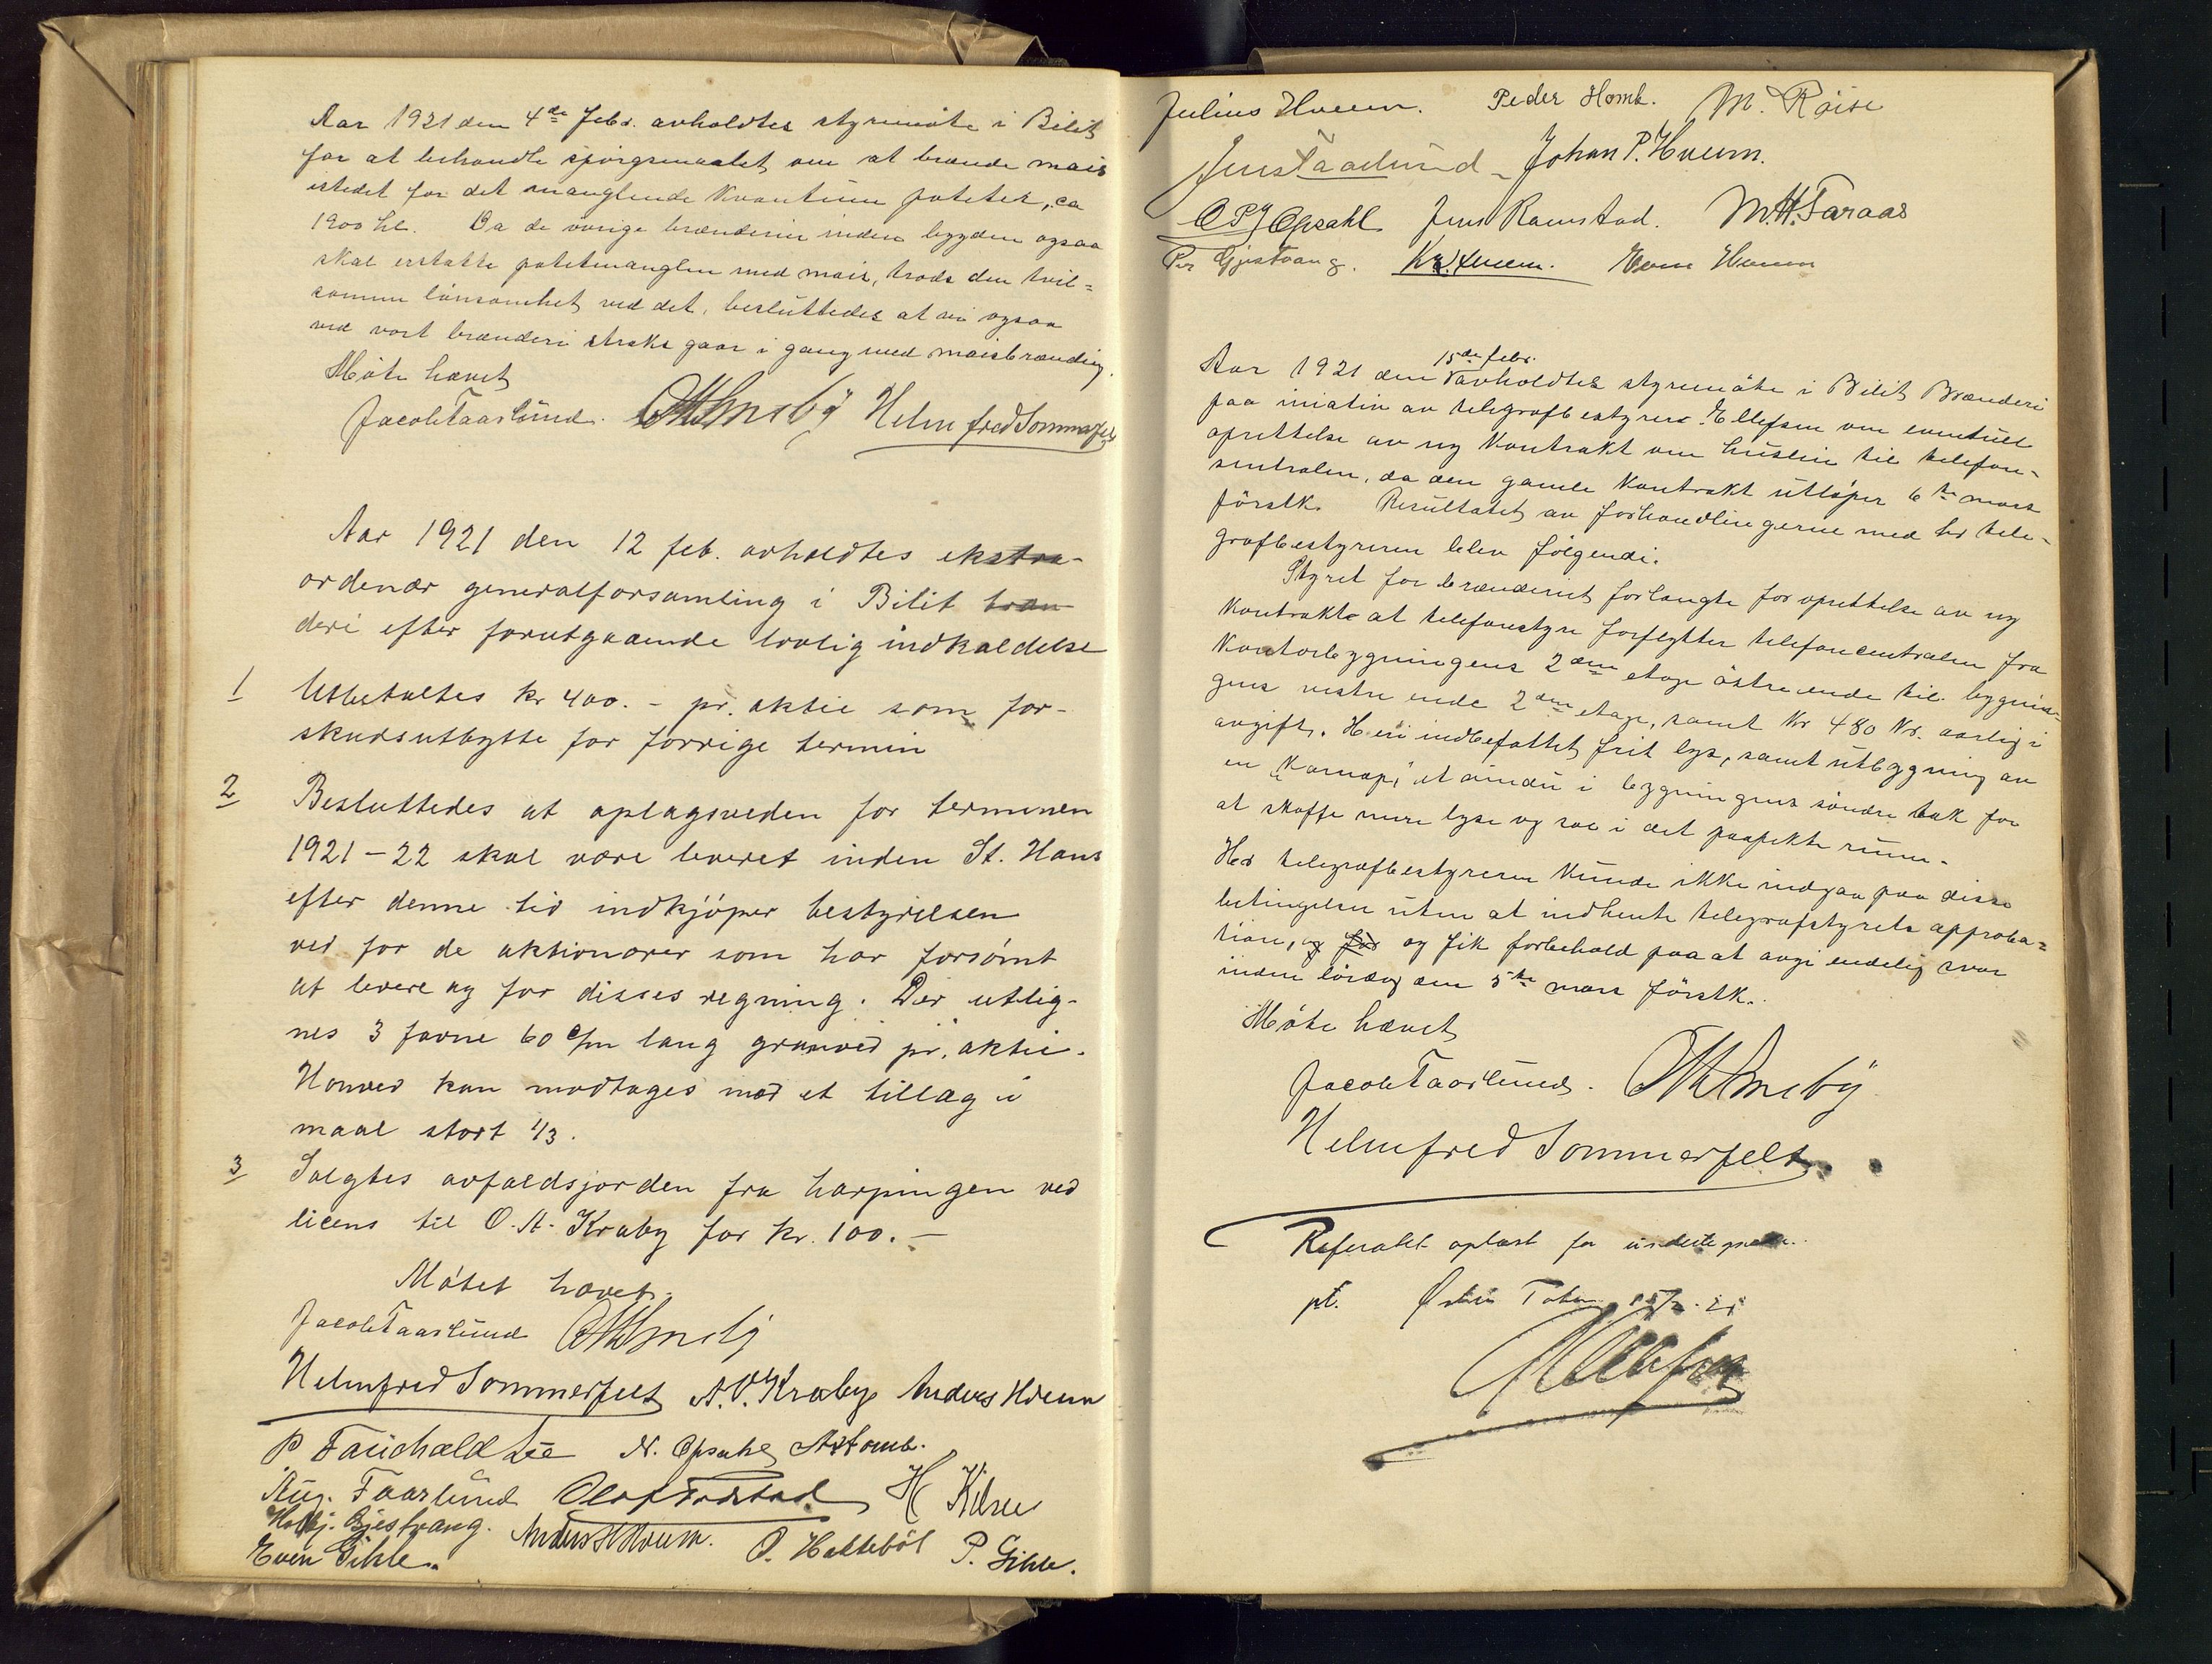 Aar 1921 den 4de febr. avholdtes styremöte i Bilit
for at behandle spörgsmaalet om at brænde mais
istedet for det manglende kvantum poteter, ca
1900 hl. Da de övrige brænderier inden bygden ogsaa
skal erstatte potetmanglen med mais, trods den tvil=
somme lönsomhet ved det, besluttedes at vi ogsaa
ved vort brænderi straks gaar i gang med maisbrænding.
Möte hævet
Jacob Taarlund. Helmfred Sommerfelt
Aar 1921 den 12 feb. avholdtes ekstra-
ordenær generalforsamling i Bilit bræn
deri efter forutgaaende lovlig indkaldelse
1 Utbetaltes kr 400.- pr. aktie som for-
skudsutbytte for forrige termin
2 Besluttedes at oplagsveden for terminen
1921-22 skal være leveret inden St. Hans
efter denne tid indkjöper bestyrelsen
ved for de aktionærer som har forsömt
at levere og for disses regning. Der utlig-
nes 3 favne 60 c/m lang granved pr. aktie.
Honved kan modtages mod et tillæg i
maal stort 1/3.
3 Solgtes avfaldsjorden fra harpingen ved
licens til O. A. Kraby for kr. 100.-
Mötet hævet.
Jacob Taarlund
Helmfred Sommerfelt A. O. Kraby Anders Hveem
P Fauchald N. Opsahl A Homb.
Aug. Faarlund H Kilsue
Gjestvang. Anders H Hveem. O. Hakkeböl P. Gihle.
Even Gihle.
Julius Hveem. Peder Homb. M. Röise
Jens Taarlund - Johan P. Hveem.
O P Opsahl Jens Ramstad. M. H. Faraas
Per Gjestvang. Kr. Hveem. Hveem
15de febr.
Aar 1921 den avholdtes styremöte i Bilit Brænderi
paa iniativ av telegrafbestyrer Ellefsen om eventuel
oprettelse av ny kontrakt om husleie til telefon-
sentralen, da den gamle kontrakt utlöper 6te mars
förstk. Resultatet av forhandlingerne med hr tele-
grafbestyreren blev fölgende:
Styret for brænderiet forlangte for oprettelse av ny
kontrakt at telefonstyre forflytter telefoncentralen fra
Kontorbygningens 2den etage östre ende til bygnin-
gens vestre ende 2den etage, samt Kr 480 Kr. aarlig i
avgift. Heri indbefattet frit lys, samt utbygning av
en "Karnap," et vindu i bygningens söndre tak for
at skaffe mere lyse og rae i det paapekte rum.
Her telegrafbestyreren kunde ikke indgaa paa disse
betingelser uten at indhente telegrafstyrets approba=
tion, og for og fik forbehold paa at avgi endelig svar
inden lördag den 5te mars förstk.
Möte hævet
Jacob Taarlund.
Helmfred Sommerfelt
Referatet oplæst for
pt. Östre Toten 15/2.21